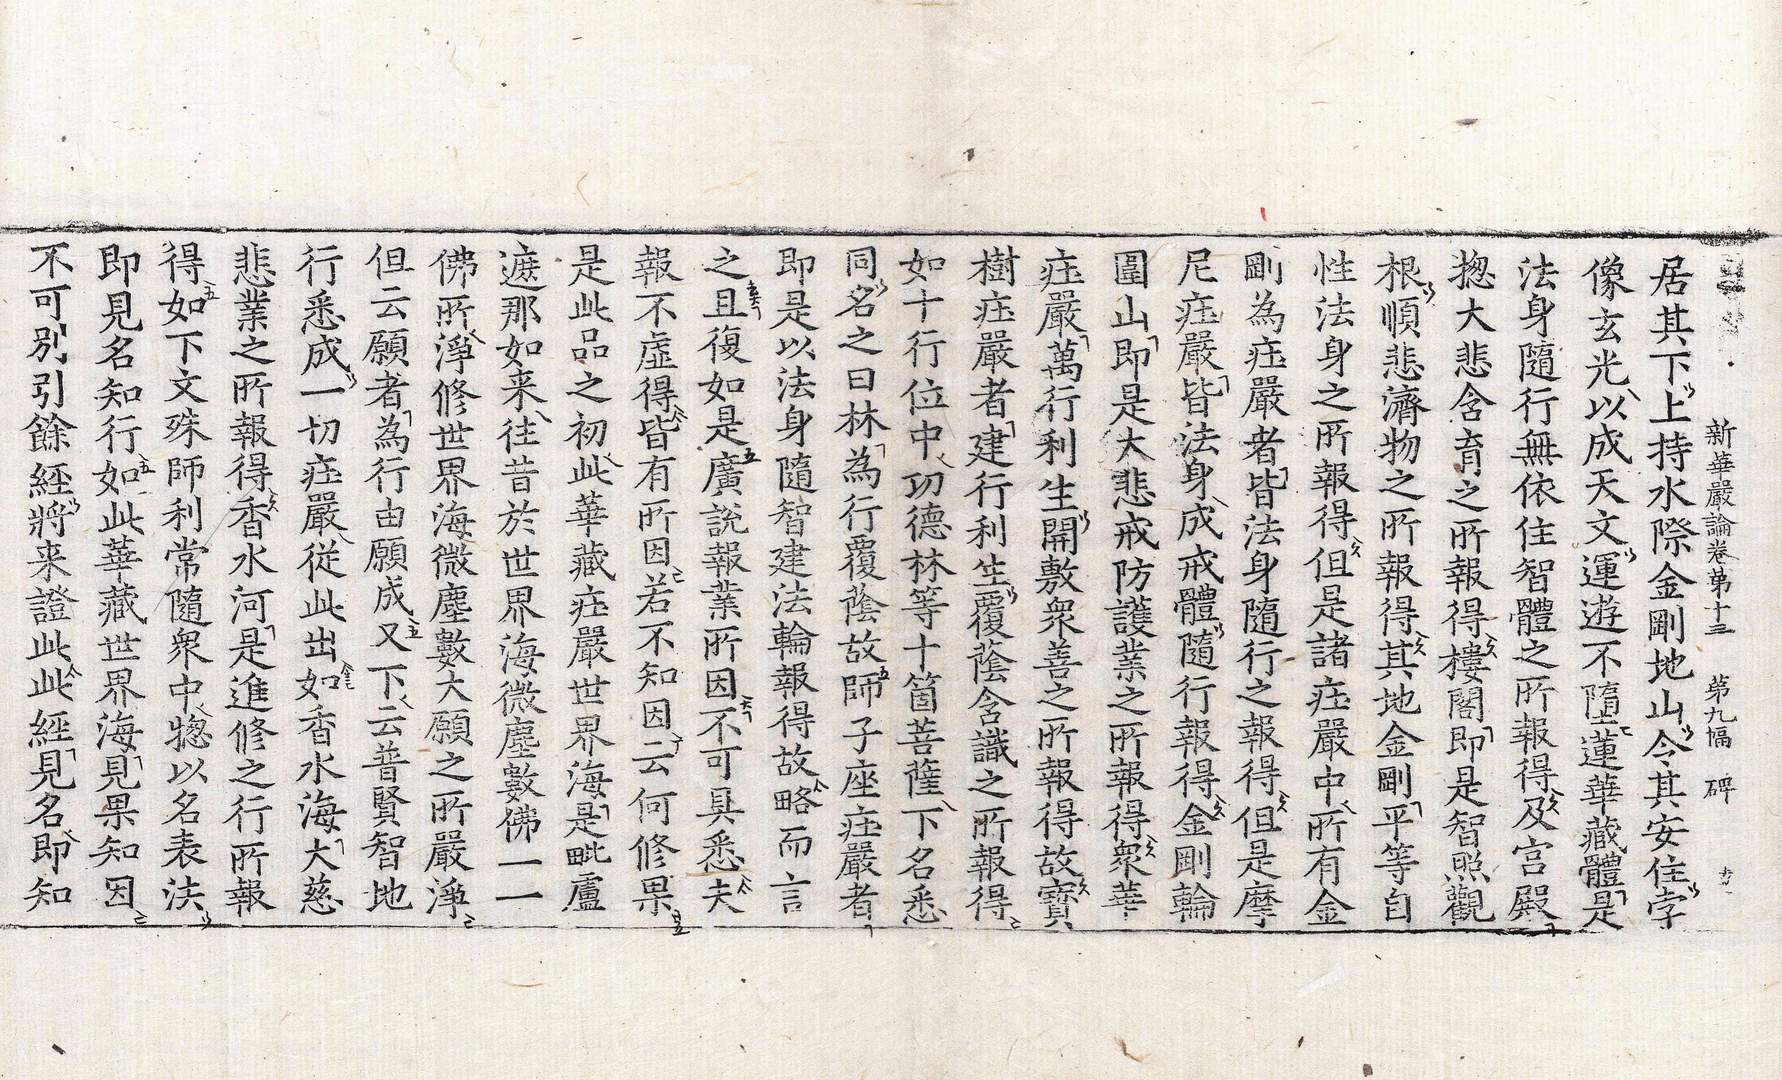 新華嚴論卷第十三 第九幅 碑
居其下上持水際金剛地山令其安住字
像玄光以成天文運遊不墮蓮華藏體是
法身隨行無依住智體之所報得及宫殿
揔大悲含育之所報得樓閣即是智照觀
根順悲濟物之所報得其地金剛平等自
性法身之所報得但是諸庄嚴中所有金
剛為庄嚴者皆法身隨行之報得但是摩
尼庄嚴皆法身成戒體隨行報得金剛輪
圍山即是大悲戒防護業之所報得衆華
庄嚴萬行利生開敷衆善之所報得故寳
樹庄嚴者建行利生覆蔭含識之所報得
如十行位中功德林等十箇菩薩下名悉
同名之曰林為行覆蔭故師子座庄嚴者
即是以法身隨智建法輪報得故略而言
之且復如是廣說報業所因不可具悉夫
報不虛得皆有所因若不知因云何修果
是此品之初此華藏庄嚴世界海是毗盧
遮那如来往昔於世界海微塵數佛一一
佛所淨修世界海微塵數大願之所嚴淨
但云願者為行由願成又下云普賢智地
行悉成一切庄嚴從此出如香水海大慈
悲業之所報得香水河是進修之行所報
得如下文殊師利常隨衆中揔以名表法
即見名知行如此華藏世界海見果知因
不可別引餘經將来證此此經見名即知